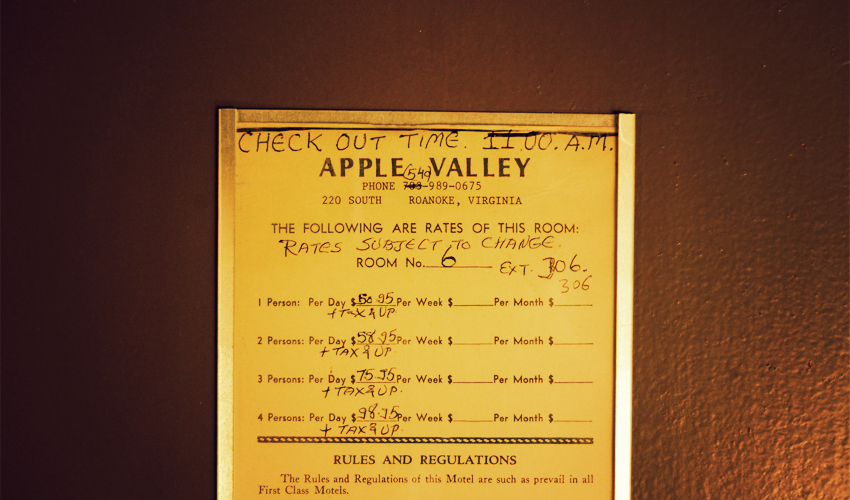 CHECK OUT TIME. 11.00. A.M.
APPLE VALLEY
(540)
PHONE 703-989-0675
220 SOUTH ROANOKE, VIRGINIA
THE FOLLOWING ARE RATES OF THIS ROOM:
RATES SUBJECT TO CHANGE.
ROOM No. 6 EXT. 306.
306
1 Person: Per Day $50.95 Per Week $______ Per Month $______
+ TAX & UP
2 Persons: Per Day $58.95 Per Week $______ Per Month $______
+ TAX & UP
3 Persons: Per Day $75.95 Per Week $______ Per Month $______
+ TAX & UP.
4 Persons: Per Day $98.95 Per Week $______ Per Month $______
+ TAX & UP.
RULES AND REGULATIONS
The Rules and Regulations of this Motel are such as prevail in all
First Class Motels.